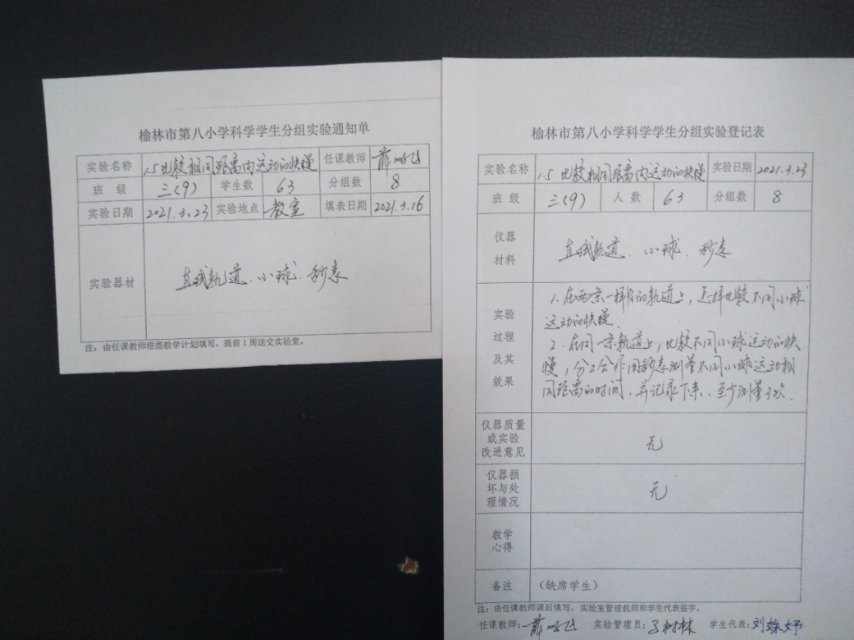 榆林市第八小学科学学生分组实验通知单
实验名称 1.5比较相同距离内运动的快慢 任课教师
班 级 三(9) 学生数 63 分组数 8
实验日期 2021.3.23 实验地点 教室 填表日期 2021.3.16
实验器材 直线轨道、小球、秒表
注：由任课教师根据教学计划填写，提前1周送交实验室。
榆林市第八小学科学学生分组实验登记表
实验名称 1.5比较相同距离内运动的快慢 实验日期 2021.3.23
班 级 三(9) 人 数 63 分组数 8
仪器
材料
直线轨道、小球、秒表
实验
过程
及其
效果
1.在两条一样的轨道上，怎样比较不同小球
运动的快慢
2.在同一条轨道上，比较不同小球运动的快
慢，分工合作用秒表测量不同小球运动相
同距离的时间，并记录下来，至少测量3次.
仪器质量
或实验
改进意见
无
仪器损
坏与处
理情况
无
教学
心得
备注 （缺席学生）
注：由任课教师课后填写，实验室管理教师和学生代表签字。
任课教师： 实验管理员： 学生代表：